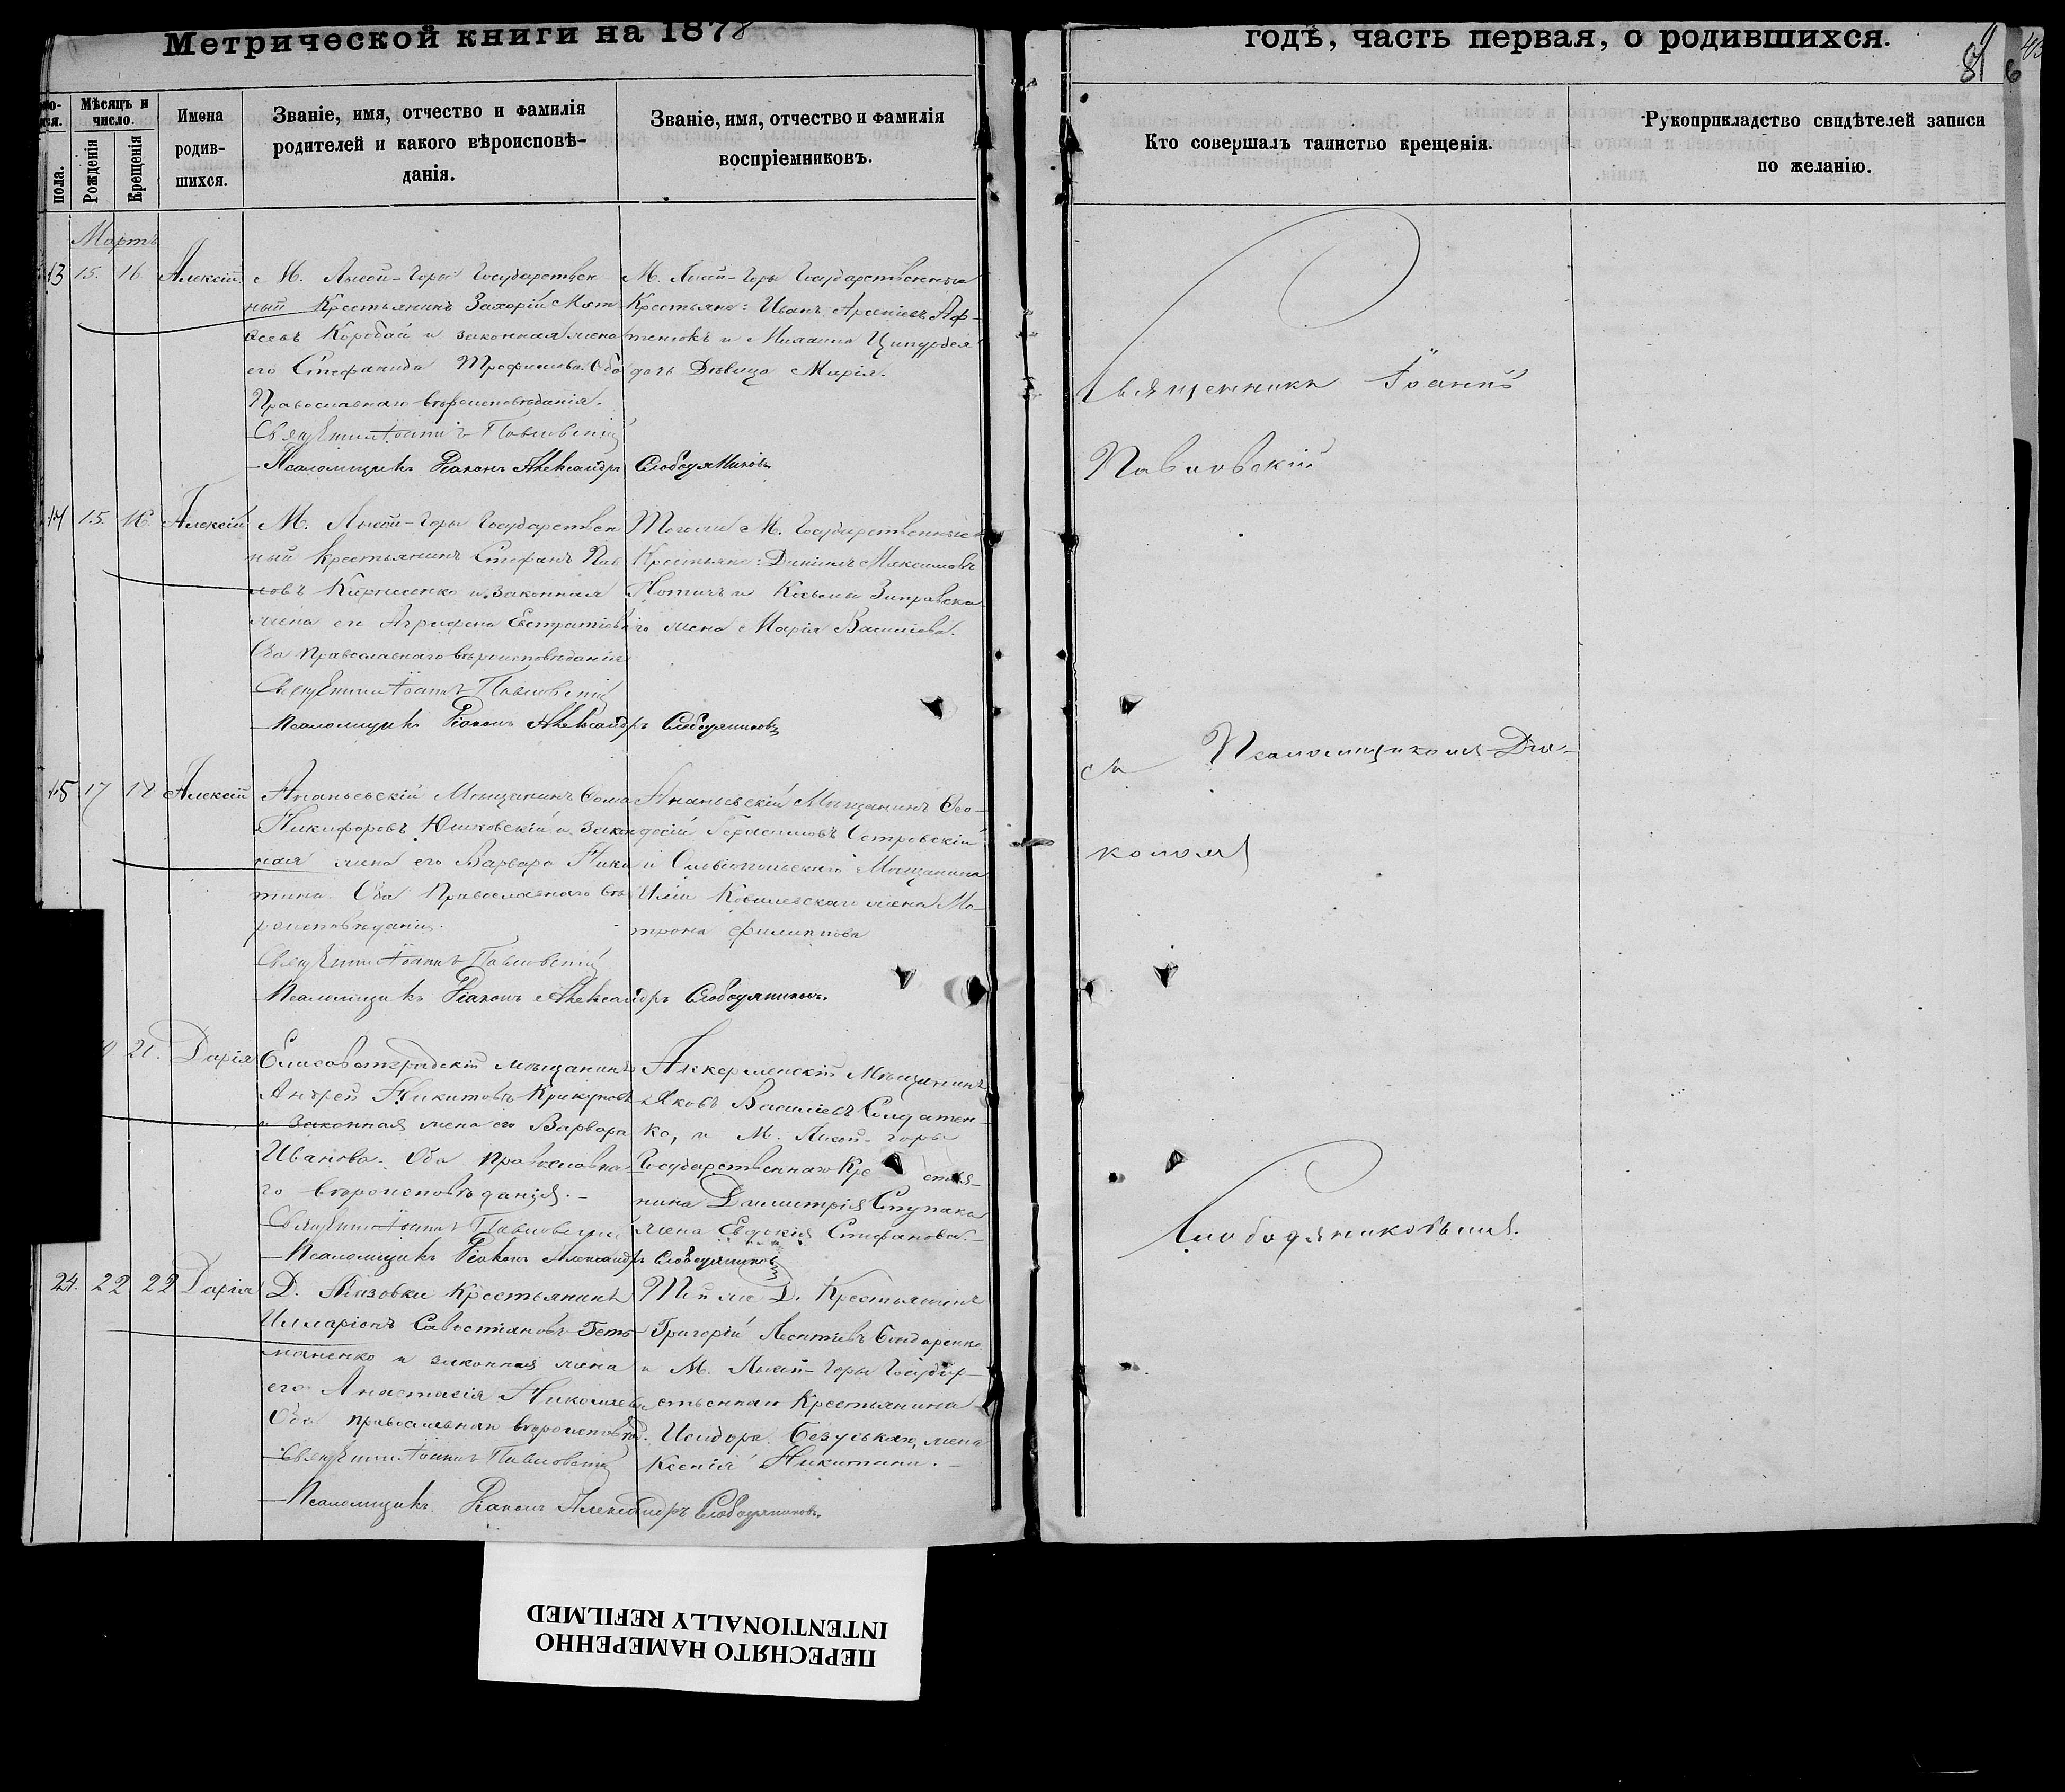 Метрической книги на 1878
годъ, часть первая, о родившихся.
81
6
Мѣсяцъ и число.
пола.
Рожденія
Крещенія
Имена родив-шихся.
Званіе, имя, отчество и фамилія
родителей и какого вѣроисповѣ-
данія.
Званіе, имя, отчество и фамилія
воспріемниковъ.
Кто совершалъ таинство крещенія.
Рукоприкладство свидѣтелей записи
по желанію.
Мартъ
13 15. 16 Алексій.
М. Лысой-Горы Государствен
ный Крестьянинъ Захарій Мат
ѳеевъ Коробай и законная жена
его Стефанида Трофимова. Оба
Православнаго вѣроисповѣданія.
Священникъ Іоаннъ Павловскій
Псаломщикъ Діаконъ Александръ Слободяниковъ
М. Лысой-Горы Государственные
Крестьяне: Иванъ Арсеніевъ Аф-
тенюкъ и Михаила
дочь Дѣвица Марія.
14 15. 16. Алексій
М. Лысой-Горы Государствен
ный Крестьянинъ Стефанъ Пав
ловъ Кирисенко и законная
жена его Агрифена Евстратіева
Оба Православнаго вѣроисповѣданія
Священникъ Іоаннъ Павловскій
Псаломщикъ Діаконъ Александръ Слободяниковъ
Тогоже М. Государственные
Крестьяне: Даніилъ Максимовъ
и Козьмы
го жена Марія Василіева.
15 17 18 Алексій
Ананьевскій Мѣщанинъ Ѳома
Никифоровъ Юшковскій и закон
ная жена его Варвара Ники
тина. Оба Православнаго вѣ
роисповѣданія.
Священникъ Іоаннъ Павловскій
Псаломщикъ Діаконъ Александръ Слободяниковъ.
Ананьевскій Мѣщанинъ Ѳео-
досій Герасимовъ Островскій
и Ольвіопольскаго Мѣщанина
Иліи Ковалевскаго жена Ма-
трона Филиппова
21. Дарія
Елисаветградскій мѣщанинъ
Андрей Никитовъ Крикуновъ
и законная жена его Варвара
Иванова. Оба православна-
го вѣроисповѣданія.-
Священникъ Іоаннъ Павловскій
Псаломщикъ Діаконъ Александръ Слободяниковъ
Аккерменскій Мѣщанинъ
Яковъ Василіевъ Солдатен-
ко, и М. Лысой-горы
Государственнаго Крестья-
нина Димитрія Ступака
жена Евдокія Стефанова.-
24. 22 22 Дарія
Д. Крестьянинъ
Илларіонъ Савостіановъ Геть-
маненко и законная жена
его Анастасія Николаева
Оба православнаго вѣроисповѣд.
Священникъ Іоаннъ Павловскій
Псаломщикъ Діаконъ Александръ Слободяниковъ.
Той же Д. Крестьянинъ
Григорій Леонтіевъ Бондаренко
и М. Лысой-Горы Государ-
ственнаго Крестьянина
Исидора жена
Ксенія Никитина.-
Священникъ Іоаннъ
Павловскій
съ Псаломщикомъ Діа-
кономъ
Слободяниковымъ.
ПЕРЕСНЯТО НАМЕРЕННО
INTENTIONALLY REFILMED